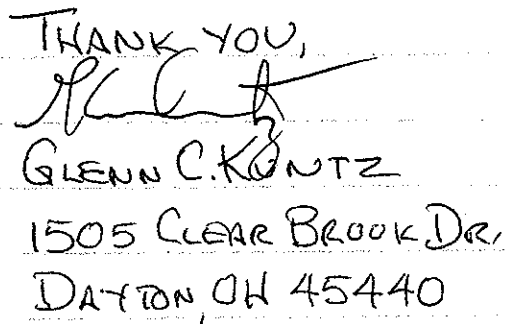 THANK YOU,
GLENN C. KUNTZ
1505 CLEAR BROOK DR,
DAYTON, OH 45440